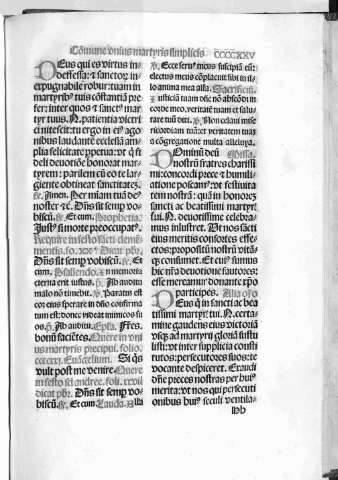 Cōmune vnius martyris simplicis CCCCXXV
Deus qui es virtus in
defessa: ⁊ sanctorū in
expugnabile robur: tuam in
martyribꝰ tuis cōstantiā pre
fer: inter quos ⁊ sanctꝰ mar
tyr tuus. N. patientia victri
ci nitescit: tu ergo in eiꝰ ago
nibus laudante ecclesiā am
plia felicitate ꝑpetua: vt q̄ fi
deli deuotiōe honorat mar
tyrem: parilem cū eo te lar
giente obtineat sanctitatē.
℟. Amen. Per miam tuā deꝰ
noster ⁊c. Dn̄s sit semp vo
biscū. ℟. Et cum. Prophetia.
Justꝰ si morte preoccupatꝰ.
Require in festo scti
Dn̄s sit semp vobiscū. ℟. Et
cum. Psallendo. In memoria
eterna erit iustus. ℣. Ab auditu
malo nō timebit. ℣. Paratum est
cor eius sperare in dn̄o confirma
tum est: donec videat inimicos su
os. ℣. Ab auditu. Epl̄a. Fr̄es.
bonū faciētes. Quere in vni
us martyris precipui. folio
Euāgelium. Si q̇s
vult post me venire. Quere
in festo
dicat pbr. Dn̄s sit semp vo
biscū. ℟. Et cum. Lauda. Alla
℣. Ecce seruꝰ meus suscipiā eū:
electus meus cōplacuit sibi in il
lo anima mea alla. Sacrificiū.
Iusticiam tuam dn̄e nō abscōdi in
corde meo. veritatē tuam ⁊ salu
tare tuū dixi. ℣. Non celaui mise
ricordiam tuā: et veritatem tuam
a cōgregatione multa alleluya.
Dominū deū Missa.
nostrū fratres charissi
mi: concordi prece ⁊ humili
atione poscamꝰ: vt festiuita
tem nostrā: quā in honorē
sancti ac beatissimi martyri
tui. N. deuotissime celebra
mus inlustret. Det nos sācti
eius meritis consortes effe
ctos: propositū nostrū vitā
qꝫ consumet. Et cuiꝰ sumus
hic nr̄a deuotione fautores:
esse mereamur donante xp̄o
participes. Alia oꝛo
Deus q̇ in sancti ac bea
tissimi martyrꝭ tui. N. certa
mine gaudens eius victoriā
vsqꝫ ad martyrij gloriā sustu
listi: vt inter supplicia consti
tutos: persecutores suos: te
vocante despiceret. Exaudi
dn̄e preces nostras per huiꝰ
merita: vt nos qui persecuti
onibus huiꝰ seculi ventila-